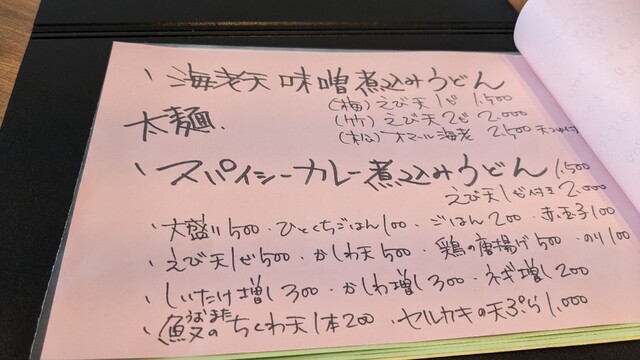 、海老天味噌煮込みうどん
(梅) えび天1ピ 1.500
太麺.
(竹) えび天2ピ 2.000
(松) オマール海老 2.500
、スパイシーカレー煮込みうどん 1.500
えび天1ピ付き 2.000
、大盛り500・ひとくちごはん100・ごはん200・赤玉子100
、えび天1ピ500・かしわ天500・鶏の唐揚げ500・のり100
、しいたけ増し300・かしわ増し300・ネギ増し200
うおまた
、のちくわ天1本200・セルカキの天ぷら1.000